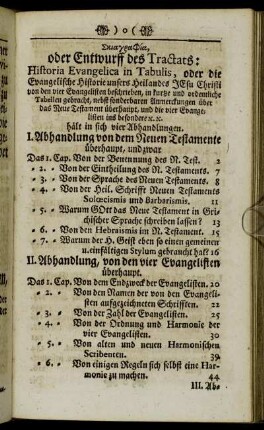 ) o (
Σκιαγραφία,
oder Entwurff des Tractats:
Historia Evangelica in Tabulis, oder die
Evangelische Historie unsers Heilandes JEsu Christi
von den vier Evangelisten beschrieben, in kurtze und ordentliche
Tabellen gebracht, nebst sonderbaren Anmerckungen über
das Neue Testament überhaupt, und die vier Evange-
listen ins besondere ꝛc. ꝛc.
hält in sich vier Abhandlungen.
I. Abhandlung von dem Neuen Testamente
überhaupt, und zwar
Das 1. Cap. Von der Benennung des N. Test. 2
- 2. - Von der Eintheilung des N. Testaments. 7
- 3. - Von der Sprache des Neuen Testaments. 8
- 4. - Von der Heil. Schrifft Neuen Testaments
Solœcismis und Barbarismis. 11
- 5. - Warum GOtt das Neue Testament in Gri-
chischer Sprache schreiben lassen? 13
- 6. - Von den Hebraismis im N. Testament. 15
- 7. - Warum der H. Geist eben so einen gemeinen
u. einfältigen Stylum gebraucht hat? 16
II. Abhandlung, von den vier Evangelisten
überhaupt.
Das 1. Cap. Von dem Endzweck der Evangelisten. 20
- 2. - Von den Namen der von den Evangeli-
sten aufgezeichneten Schrifften. 22
- 3. - Von der Zahl der Evangelisten. 25
- 4. - Von der Ordnung und Harmonie der
vier Evangelisten. 30
- 5. - Von alten und neuen Harmonischen
Scribenten. 39
- 6. - Von einigen Regeln sich selbst eine Har-
monie zu machen. 44
III. Ab-